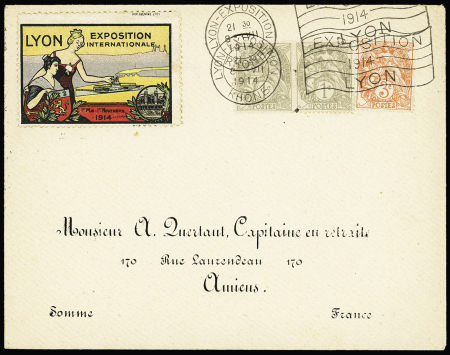 LYON EXPOSITION
INTERNATIONALE
1er Mai - 1er Novembre
1914
LYON-EXPOSITION
21 30
1914
RHONE
1914
EXPOSITION
LYON
1914
LYON
1c
POSTES
3c
POSTES
Monsieur A. Quertant, Capitaine en retraite
170 Rue Laurendeau 170
Amiens.
Somme France